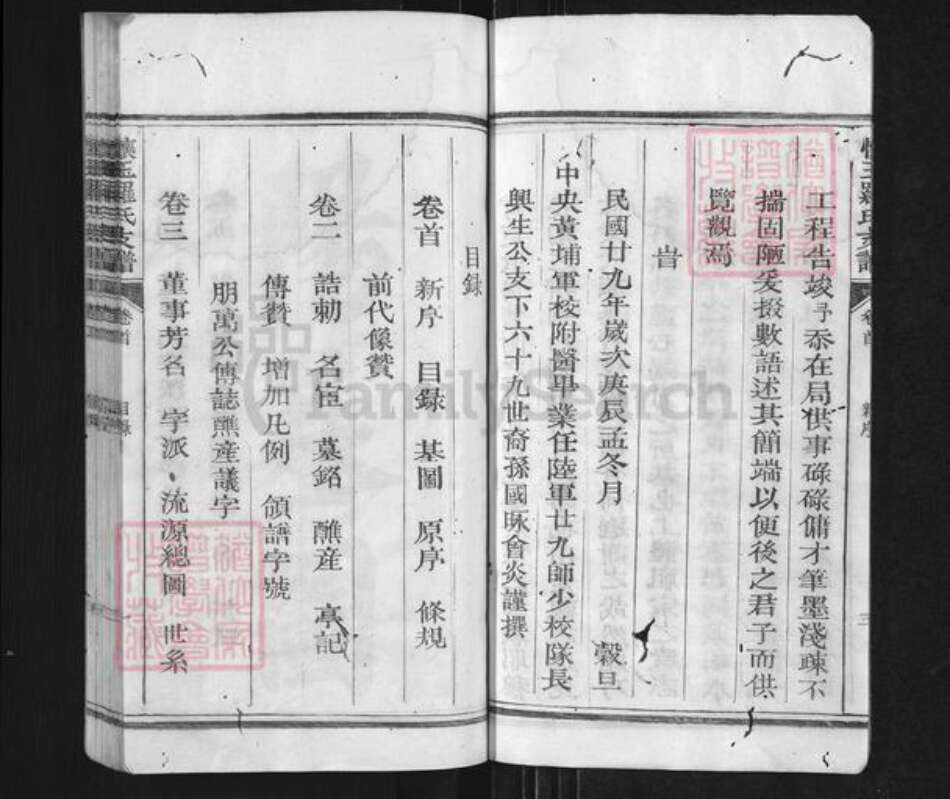 工程告竣予忝在局供事碌碌傭才筆墨淺疎不
揣固陋爰掇數語述其簡端以便後之君子而供
覽觀焉
旹
民國廿九年歲次庚辰孟冬月 穀旦
中央黃埔軍校附醫畢業任陸軍廿九師少校隊長
興生公支下六十九世裔孫國咏會炎謹撰
目錄
卷首 新序 目録 基圖 原序 條規
前代像贊
卷二 誥勅 名宦 墓銘 醮産 享記
傳贊 增加凡例 領譜字號
朋萬公傳誌醮産議字
卷三 董事芳名 字派、流源總圖 世系
懷玉羅氏支譜 卷首 目錄
FamilySearch